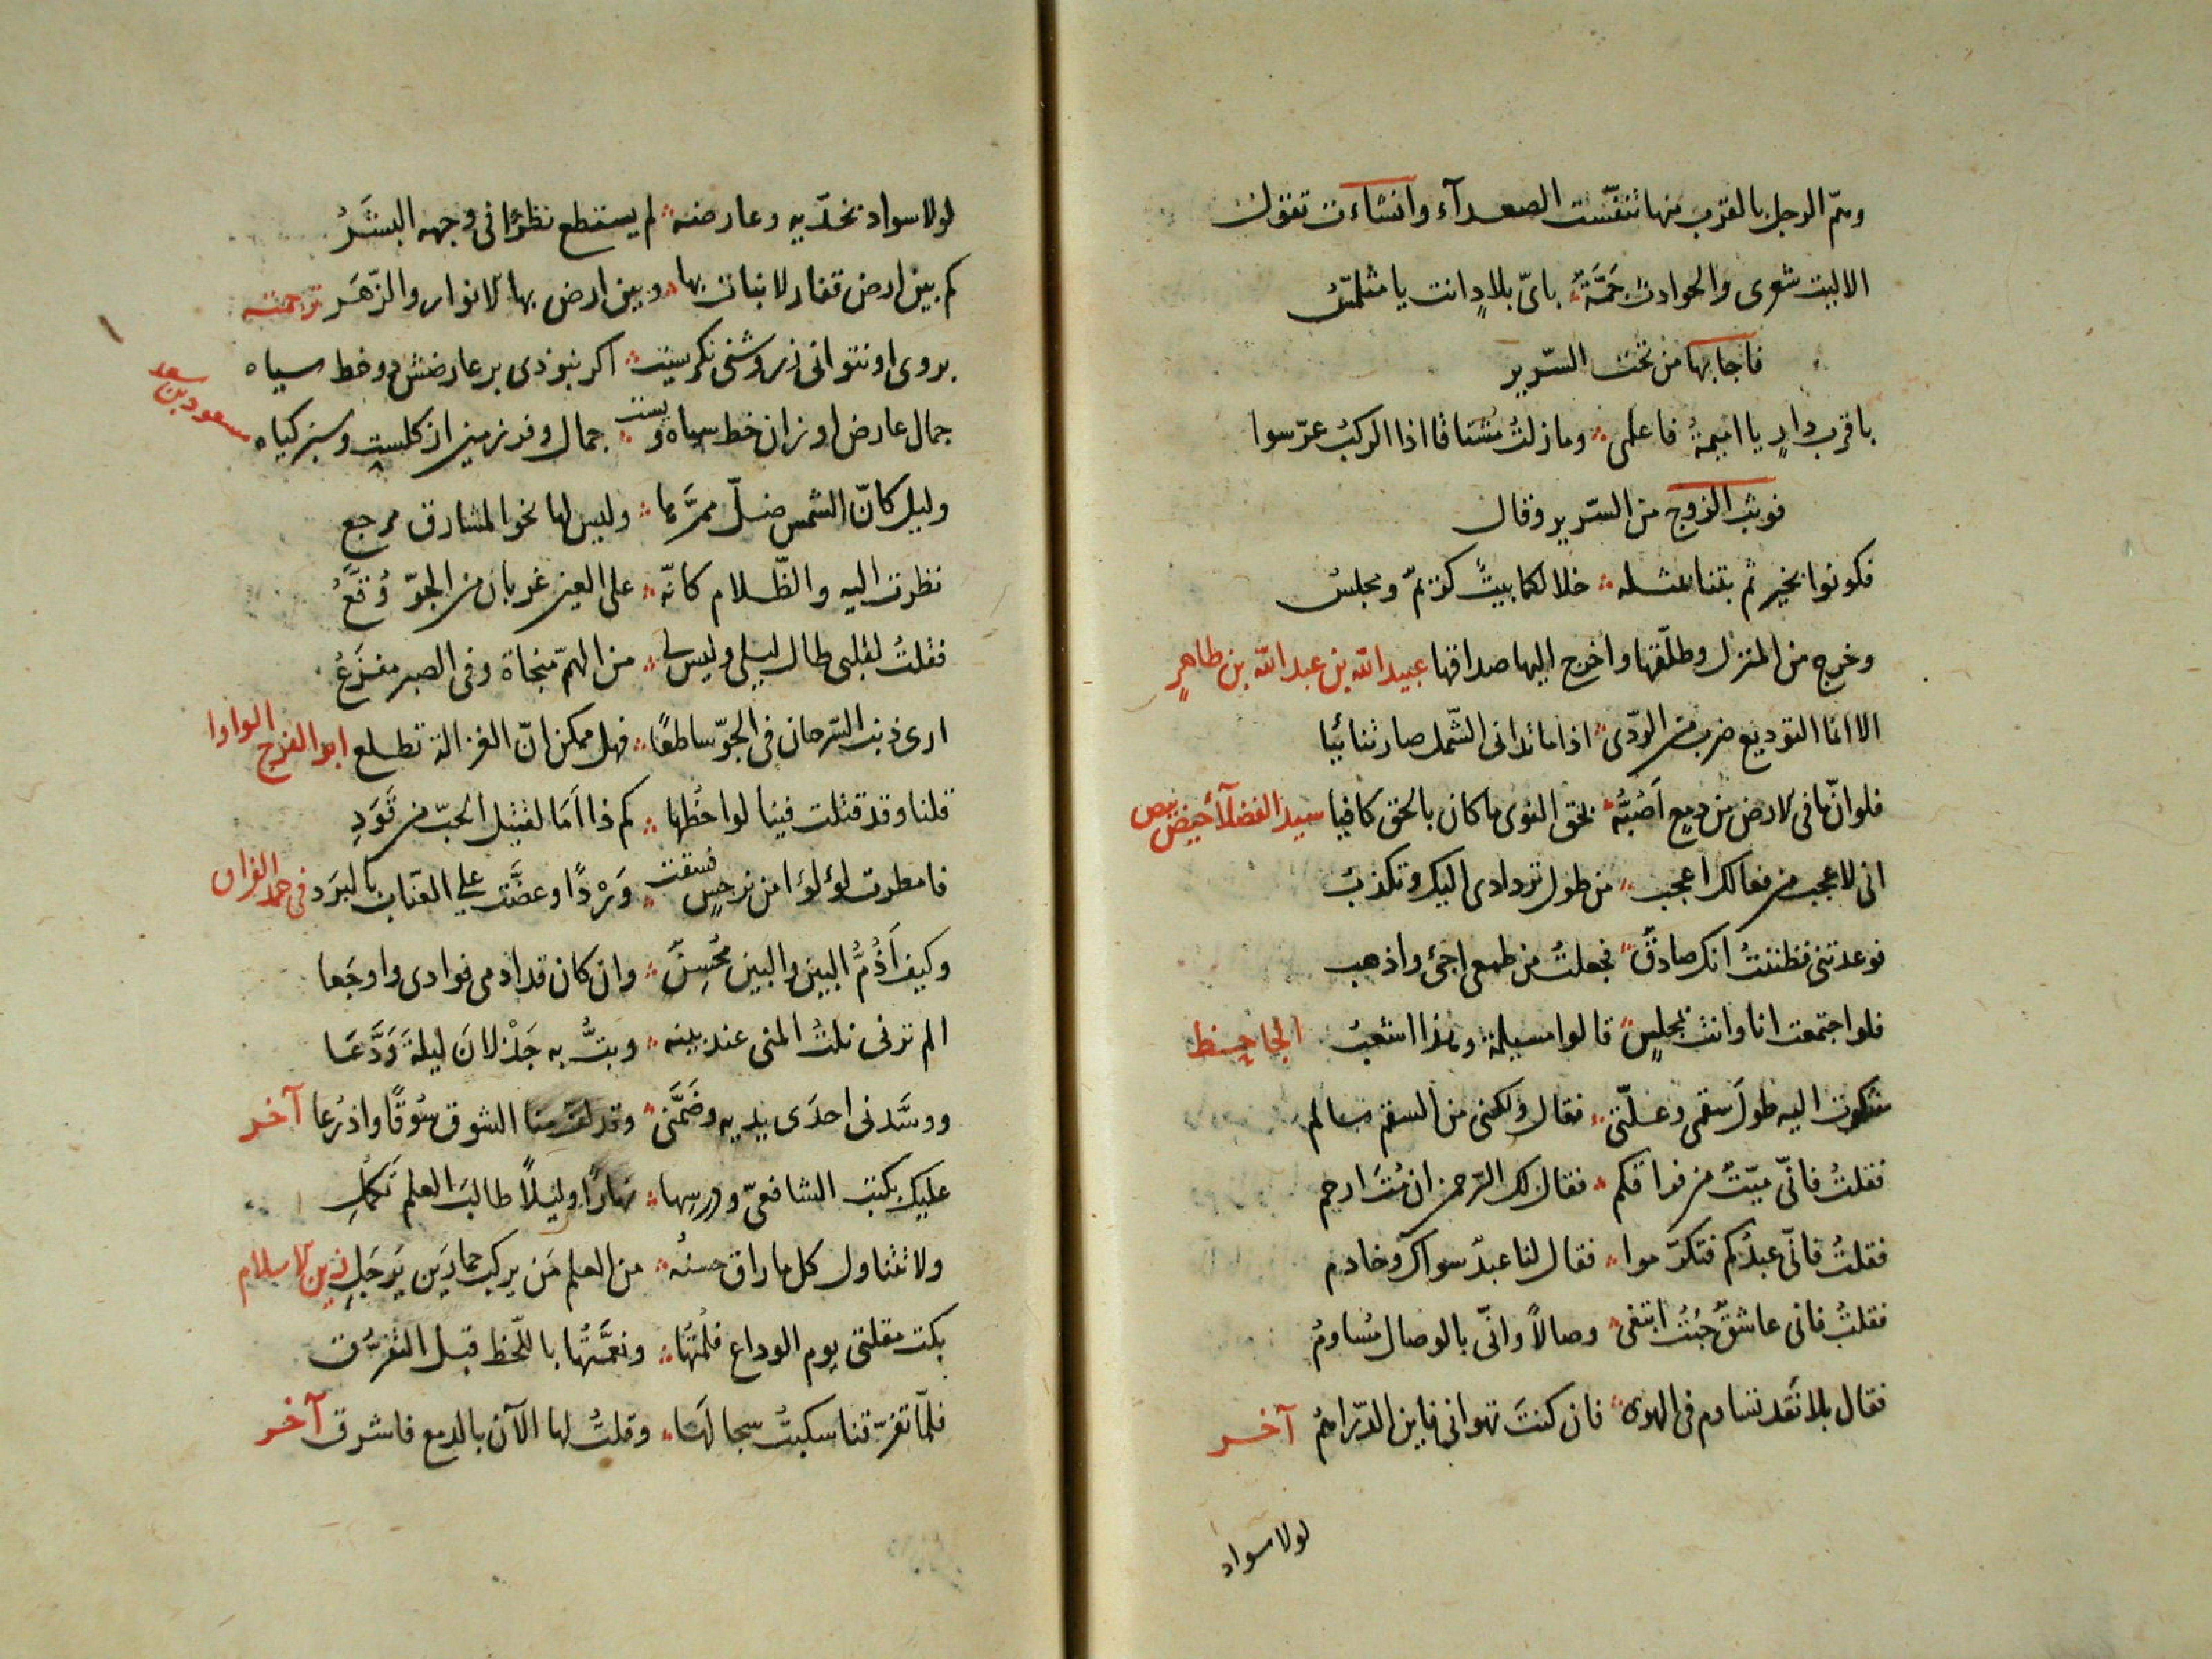 وهمّ الرجل بالقرب منها تنفّست الصعدآء وانشاءت تقول
الا ليت شعرى والحوادث جَمَّةٌ ؞ باىّ بلادٍ انت يا متلمّسُ
فاجابها من تحت السّرير
باقرب دارٍ يا اميمةُ فاعلمى ؞ وما زلتُ مشتاقا اذا الركبُ عرّسوا
فوثب الزوج من السّرير وقال
فكونوا بخير ثم بتنا بمثله ؞ خلا لكما بيتٌ كريمٌ ومجلسُ
وخرج من المنزل وطلّقها واخرج اليها صداقها عبيد الله بن عبد الله بن طاهرٍ
الا انما التوديع ضرب من الرّدى ؞ اذا ما تدانى الشّمل صار تنائيا
فلو انّ ما فى الارض من دمعٍ اَصُبُّهُ ؞ بحق النوى ما كان بالحق كافيا سيد الفضلآ حيص بيص
انى لاعجب من فعالك اعجب ؞ من طول تردادى اليك وتكذبُ
فوعدتنى فظننتُ انك صادقٌ ؞ فجعلتُ من طمعى اجئ واذهب
فلو اجتمعت انا وانت بمجلسٍ ؞ قالوا مسيلمة وهذا اشعبُ الجاحظ
شكوت اليه طولَ سقمى وعلّتى ؞ فقال ولكنى من السقم سالم
فقلتُ فانّى ميّتٌ من فراقكم ؞ فقال لك الرّحمن ان مُتَّ ارحم
فقلتُ فانّى عبدُكم فتكرّموا ؞ فقال لنا عبدٌ سواك وخادم
فقلتُ فانى عاشقٌ جئتُ ابتغى ؞ وصالاً وانّى بالوصال مُساومُ
فقال بلا نقد تساوم فى الهوى ؞ فان كنتَ تهوانى فاين الدّراهمُ آخر
لولا سواد
لولا سواد بخدّيه وعارضه ؞ لم يستطع نظرًا فى وجهه البشَرُ
كم بين ارض قفار لا نبات بها ؞ وبين ارض بها الانوار والزّهَر ترجمته
بروى او نتوانى ز روشنى نكريست ؞ اكر نبودى بر عارضش دو خط سياه
جمال عارض او زان خط سياه وبست ؞ جمال وقدر زمين از كلست وسبز كياه مسعود بن سعد
وليل كانّ الشمس ضلّ ممرّها ؞ وليس لها نحو المشارق مرجع
نظرت اليه والظّلام كانّه ؞ على العين غربان من الجوّ وُقَّعُ
فقلتُ لقلبى طال ليلى وليس لى ؞ من الهمّ منجاة وفى الصبر مفزعُ
ارى ذنب السّرحان فى الجوّ ساطعًا ؞ فهل ممكن انّ الغزالة تطلع ابو الفرج الواوا
قلنا وقد قتلت فينا لواحظها ؞ كم ذا اَمَا لقتيل الحبّ من قَوَدِ
فامطرت لؤلؤا من نرجس فسقت ؞ وَرْدًا وعضّت على العنّاب بالبَرَد فى حمد الفراق
وكيف اَذُمُّ البين والبين مُحْسِنٌ ؞ وان كان قد ادمى فوادى واوجَعا
الم ترنى نلتُ المنى عند بينه ؞ وبتُّ به جَذْلانَ ليلةَ وَدَّعَا
ووسَّدنى احدَى يديه وضَمَّنى ؞ وقد لفّ منا الشوق سُوقًا واذرُعا آخر
عليك بكتب الشافعىّ ودرسها ؞ نهارًا وليلاً طالبَ العلم تَكمل
ولا تتناول كل ما راق حسنُه ؞ من العلم مَن يركب حمارَين يَرجَلِ زين الاسلام
بكت مقلتى يوم الوداع فلمتُها ؞ ونعمَّتُها باللّحظ قبل التفرّق
فلمّا تفرّقنا سكبتُ سجالَها ؞ وقلتُ لها الآن بالدمع فاشرق آخر